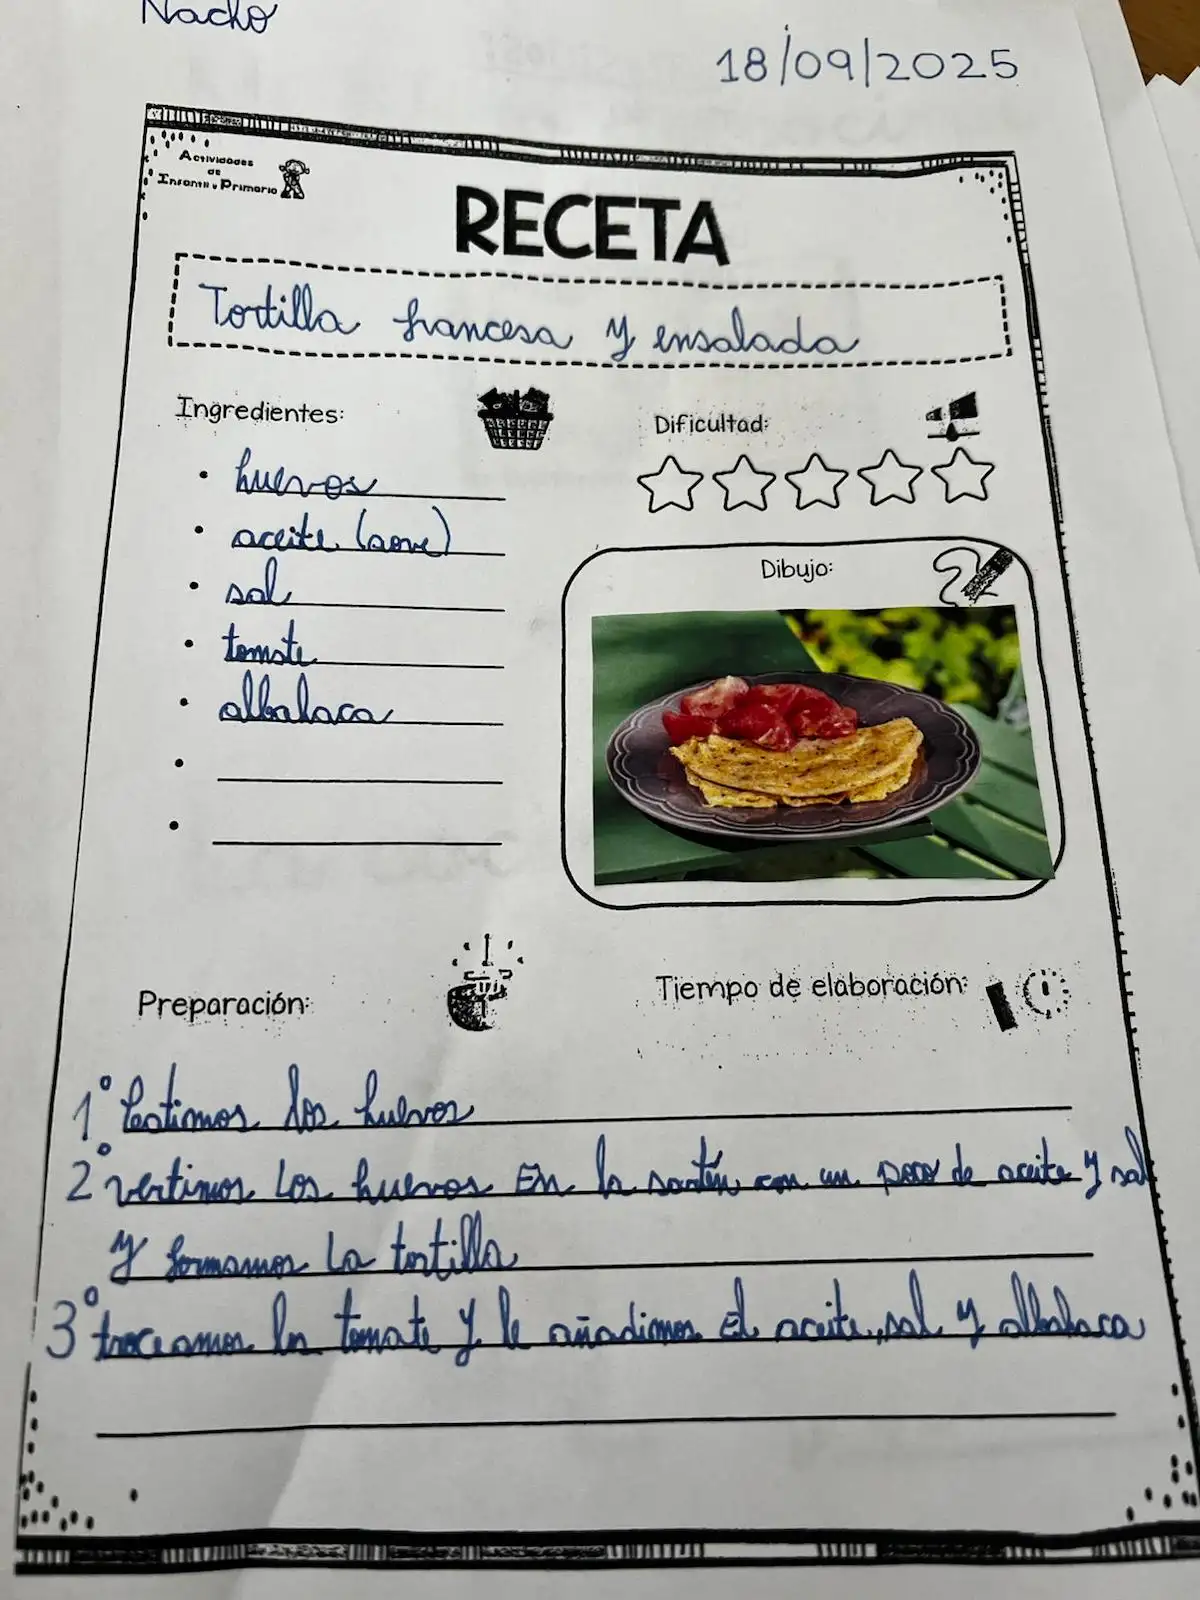 Nacho
18/09/2025
Actividades
de
Infantil y Primaria
RECETA
Tortilla francesa y ensalada
Ingredientes:
• huevos
• aceite (aove)
• sal
• tomate
• albahaca
Dificultad:
Dibujo:
Preparación:
Tiempo de elaboración:
1º Batimos los huevos
2º vertimos los huevos En la sartén con un poco de aceite y sal
y formamos la tortilla
3º troceamos los tomate y le añadimos el aceite, sal y albahaca